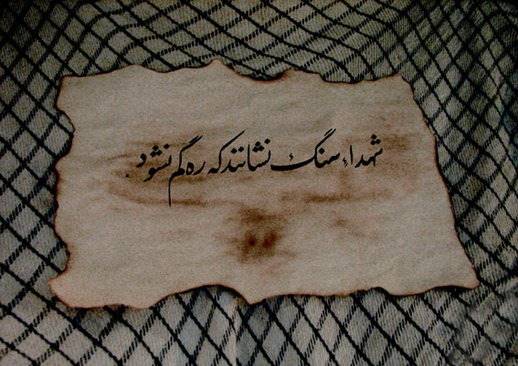 شهداء سنگ نشانند که ره گم نشود.